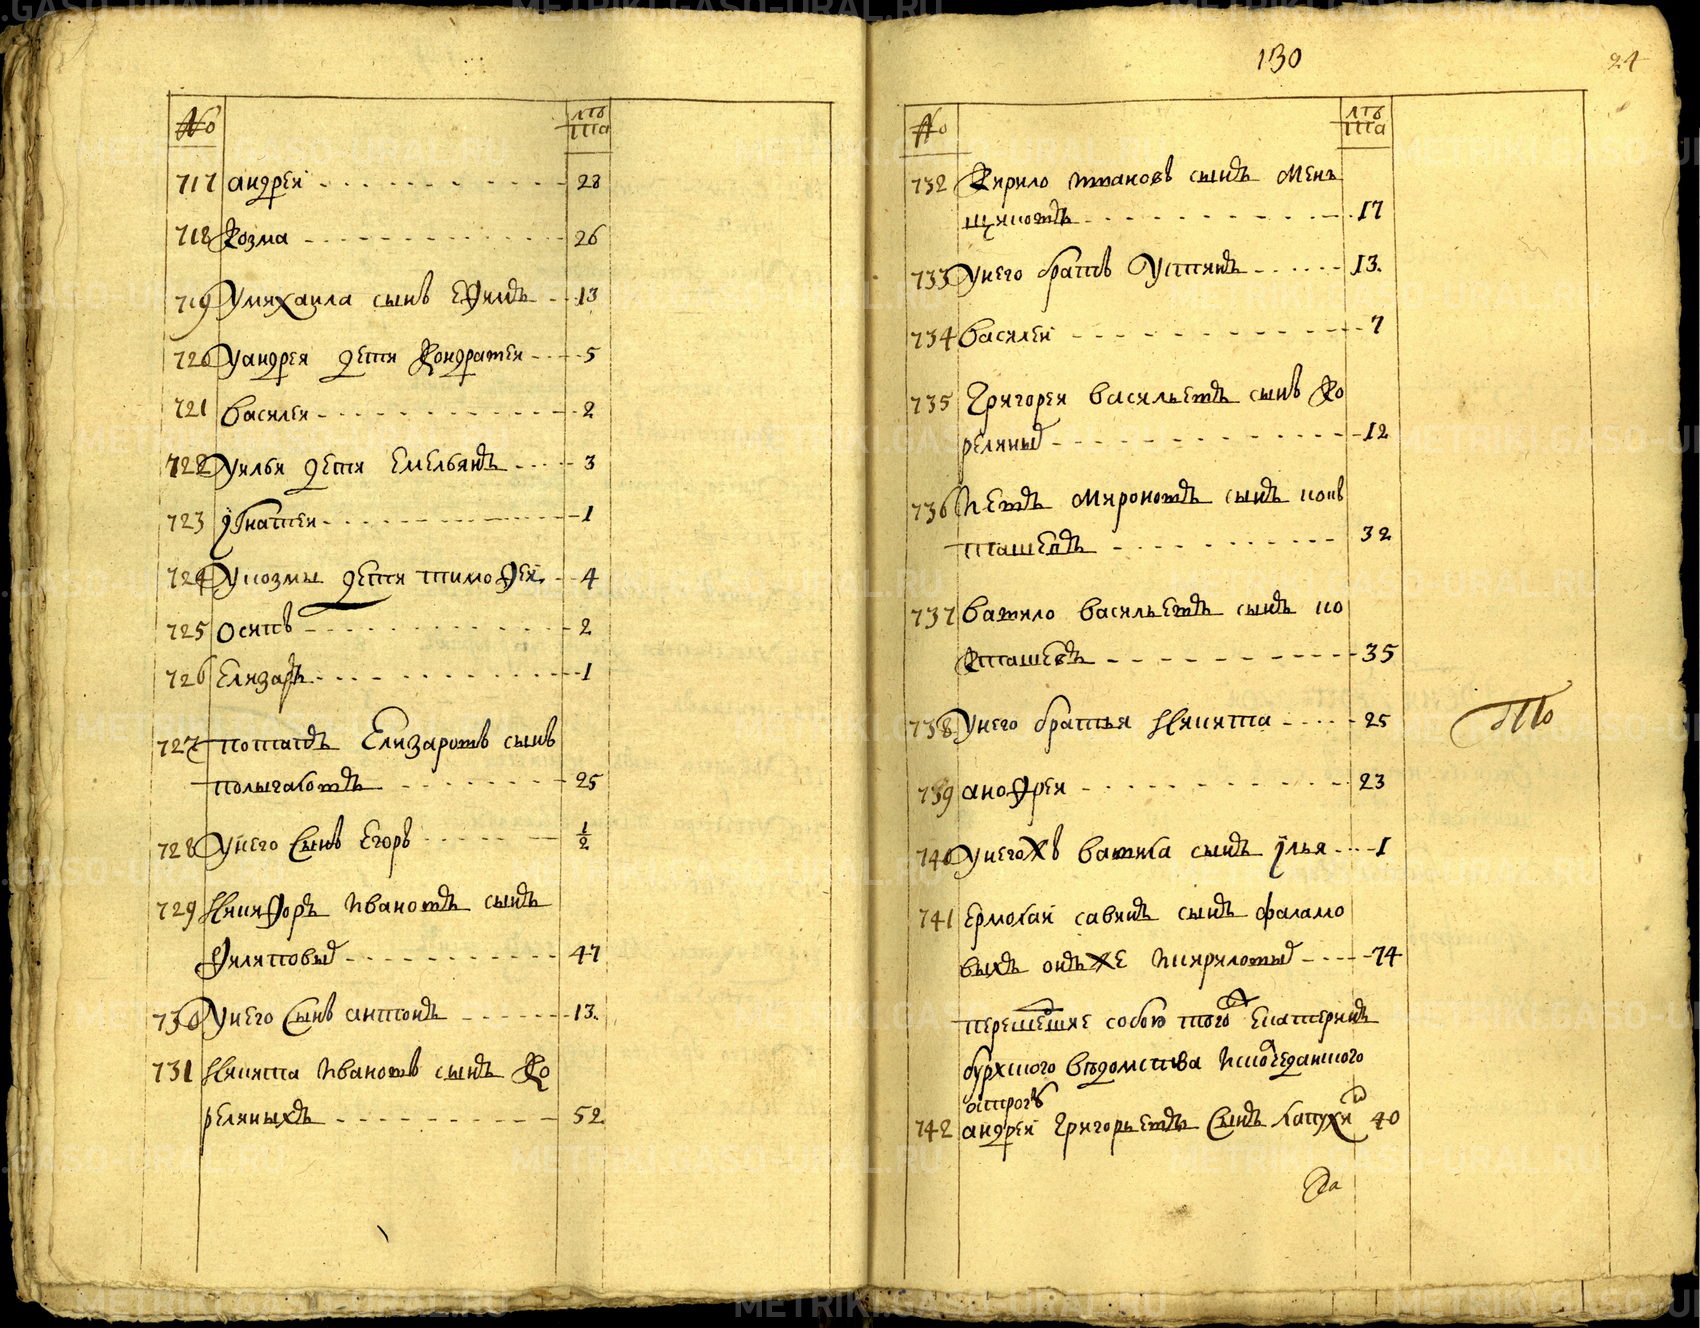 № лѣта
717 андреи 28
718 Козма 26
719 Умихаила сынъ Ефимъ 13
720 Уандрея дети Кондратеи 5
721 василеи 2
722 Уильи дети Емельянъ 3
723 Игнатеи 1
724 Укозмы дети тимофеи 4
725 Осипъ 2
726 Елизаръ 1
727 потапъ Елизаровъ сынъ
25
728 Унего Сынъ Егоръ ½
729 Никифоръ Ивановъ сынъ
Филиповы 47
730 Унего Сынъ антонъ 13.
731 Никита Ивановъ сынъ Ко
релиныхъ 52
130 24
№ лѣта
732 Кирило сынъ Мень
щиковъ 17
733 Унего братъ Устинъ 13.
734 василеи 7
735 Григореи васильевъ сынъ Ко
релины 12
736 Мироновъ сынъ кокъ
ташевъ 32
737 вавило васильевъ сынъ ко
кташевъ 35
738 Унего братья Никита 25
739 анофреи 23
740 УнегоЖъ вавила сынъ Илья 1
741 Ермолаи савинъ сынъ фаламо
выхъ онъЖЕ Кириловы 74
перешетшие собою того Екатеринъ
бурхского вѣдомства
острогъ
742 андреи Григорьевъ Сынъ лапухи 40